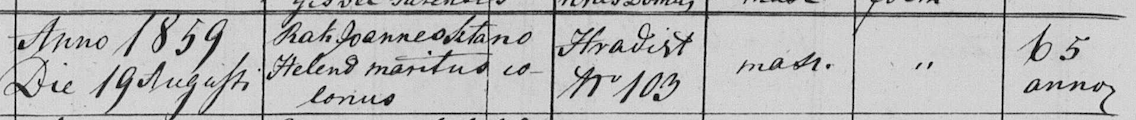 Anno 1859
Die 19 Augusti
Joannes
Helena maritus co-
lonus
Hradist
Nro 103
masc.
"
65
annor